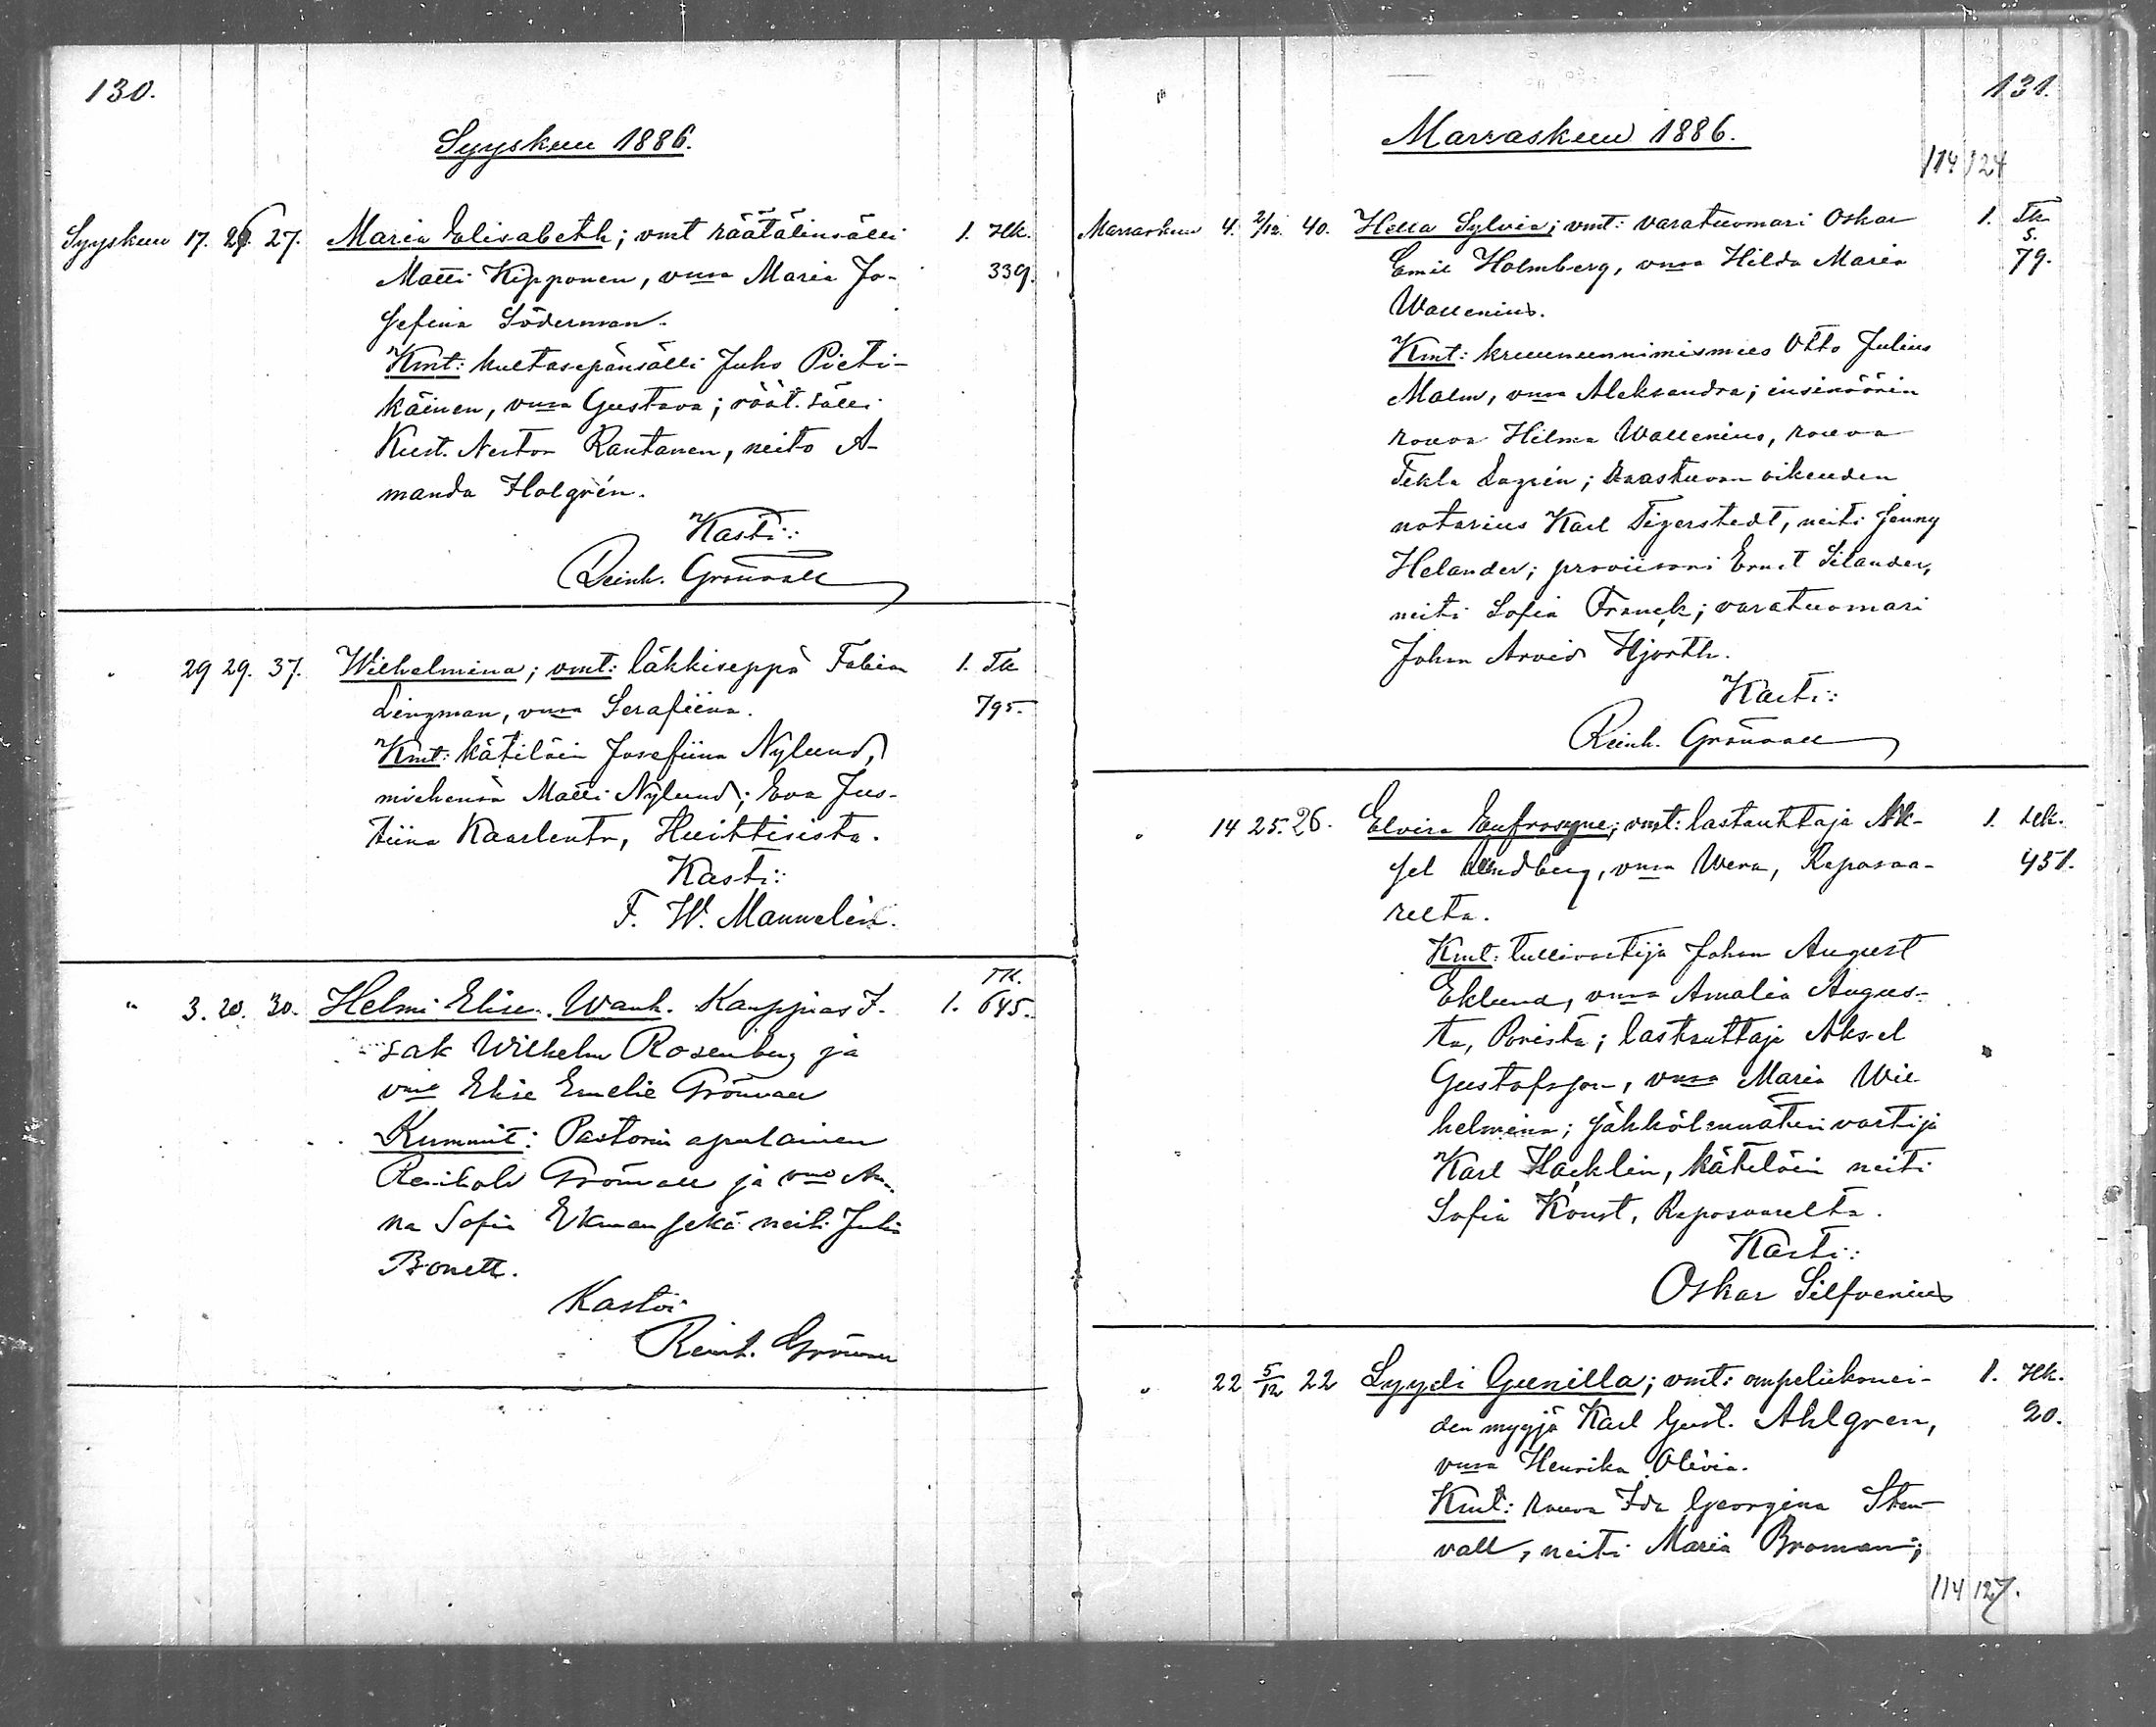 130.
Syyskuu 1886.
Syyskuu 17. 26. 27. Maria Elisabeth; vmt räätälinsälli 1. Hk.
Matti Kipponen, vmsa Maria Jo- 339.
sefina Söderman.
Kmt: kultasepänsälli Juho Pieti-
käinen, vmsa Gustava; räät. sälli
Kust. Nestor Rantanen, neito A-
manda Holgrén.
Kasti:
Reinh. Grönvall
" 29 29. 37. Wilhelmina; vmt: läkkiseppä Fabian 1. Tk
Lingman, vmsa Serafiina. 795.
Kmt: kätilöin Josefiina Nylund,
miehensä Matti Nylund; Eva Jus-
tiina Kaarlentr, Huittisista.
Kasti:
F. W. Mannelin.
" 3. 20. 30. Helmi Elise. Wanh. Kauppias I. 1. TK. 645.
sak Wilhelm Rosenberg ja
vmo Elise Emelie Grönvall
Kummit: Pastorin apulainen
Reinhold Grönvall ja vmo An-
na Sofia Ekman sekä neiti Julia
Bonett.
Kastoi
Reinh. Grönvall
131.
Marraskuu 1886.
114 124
Marraskuu 4. 2/12 40. Hella Sylvia; vmt: varatuomari Oskar 1. Tk
S.
Emil Holmberg, vmsa Hilda Maria 79.
Wallenius.
Kmt: kruununnimismies Otto Julius
Malm, vmsa Aleksandra; insinöörin
rouva Hilma Wallenius, rouva
Tekla Lagrén; Raastuvan oikeuden
notarius Karl Tigerstedt, neiti Jenny
Helander; proviisori Ernst Silander,
neiti Sofia Franck; varatuomari
Johan Arvid Hjorth.
Kasti:
Reinh. Grönvall
" 14 25. 26. Elvira Eufrosyne; vmt: lastauttaja Ak- 1. Hk.
sel Lindberg, vmsa Wera, Reposaa- 451.
relta.
Kmt: tullivartija Johan August
Eklund, vmsa Amalia Augus-
ta, Porista; lastauttaja Aksel
Gustafsson, vmsa Maria Wil
helmina; sähkölennätin vartija
Karl Hacklin, kätilöin neiti
Sofia Konst, Reposaarelta.
Kasti:
Oskar Silfvenius
" 22 5/12 22 Lyydi Gunilla; vmt: ompelukonei- 1. Hk.
den myyjä Karl Gust. Ahlgren, 20.
vmsa Henrika Olivia.
Kmt: rouva Ida Georgina Sten-
vall, neiti Maria Broman;
114 127.